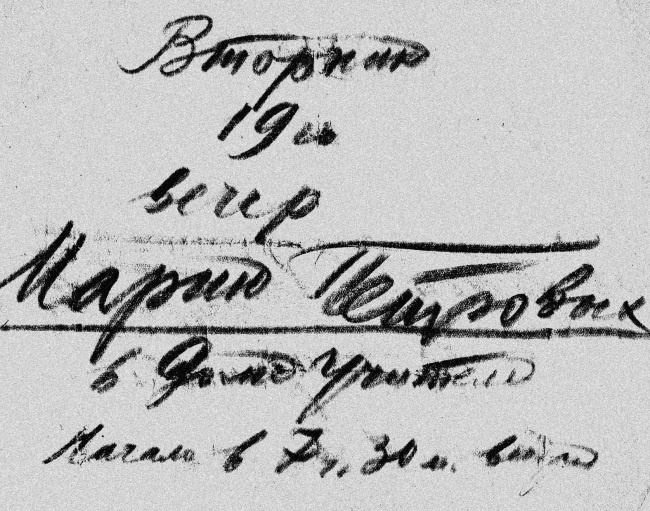 Вторник
19 ш
вечер
Марии Петровых
в Доме Учителя
Начало в 7 ч. 30 м. вечера